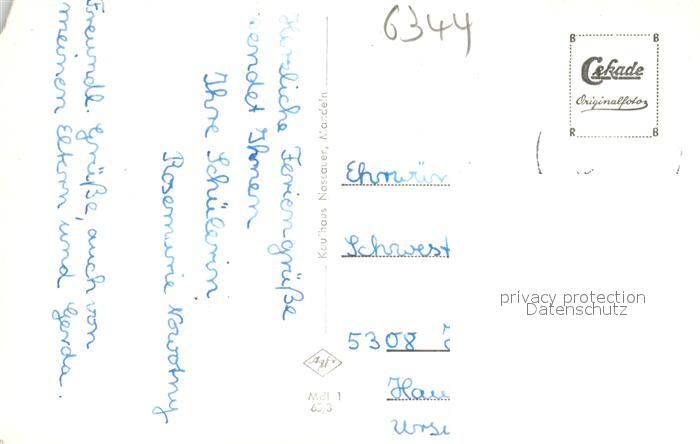 Herzliche Feriengrüße
sendet Ihnen
Ihre Schülerin
Rosemarie Nowotny
Freundl. Grüße, auch von
meinen Eltern und Gerda.
Kaufhaus Nassauer, Mandeln
6344
B B
Cekade
Originalfotos
R B
Ehrwür
Schwest
5308
Hau
Ursu
Agfa
Mdl 1
63/3
privacy protection
Datenschutz